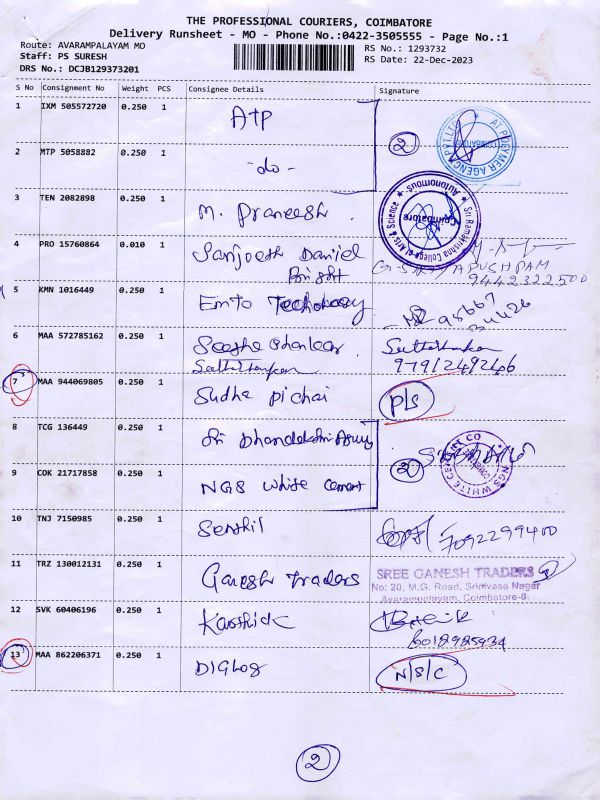 THE PROFESSIONAL COURIERS, COIMBATORE
Delivery Runsheet - MO - Phone No.:0422-3505555 - Page No.:1
Route: AVARAMPALAYAM MO
Staff: PS SURESH
DRS No.: DCJB129373201
RS No.: 1293732
RS Date: 22-Dec-2023
S No Consignment No Weight PCS Consignee Details Signature
1 IXM 505572720 0.250 1 Atp
2
AT POLYMER AGENCY PVT LTD
COIMBATORE
2 MTP 5058882 0.250 1 -do-
3 TEN 2082898 0.250 1 M. Praneesh.
Sri Ramakrishna College of Arts & Science
Autonomous
Coimbatore
4 PRO 15760864 0.010 1 Sanjoesh Daniel
Bright
PUSHPAM
9442322500
5 KMN 1016449 0.250 1 Emto Technology
98667
6 MAA 572785162 0.250 1
9791249246
7 MAA 944069805 0.250 1 Sudha pichai P/S
8 TCG 136449 0.250 1 Sri
2
NGS WHITE CEMENT CO
9 COK 21717858 0.250 1 NGS white cement
10 TNJ 7150985 0.250 1 Senthil 7092299400
11 TRZ 130012131 0.250 1 Ganesh traders
SREE GANESH TRADERS
No: 20, M.G. Road, Srinivasa Nagar
Avarampalayam, Coimbatore-6.
12 SVK 60406196 0.250 1 Karthick
13 MAA 862206371 0.250 1 Diglog N/S/C
2